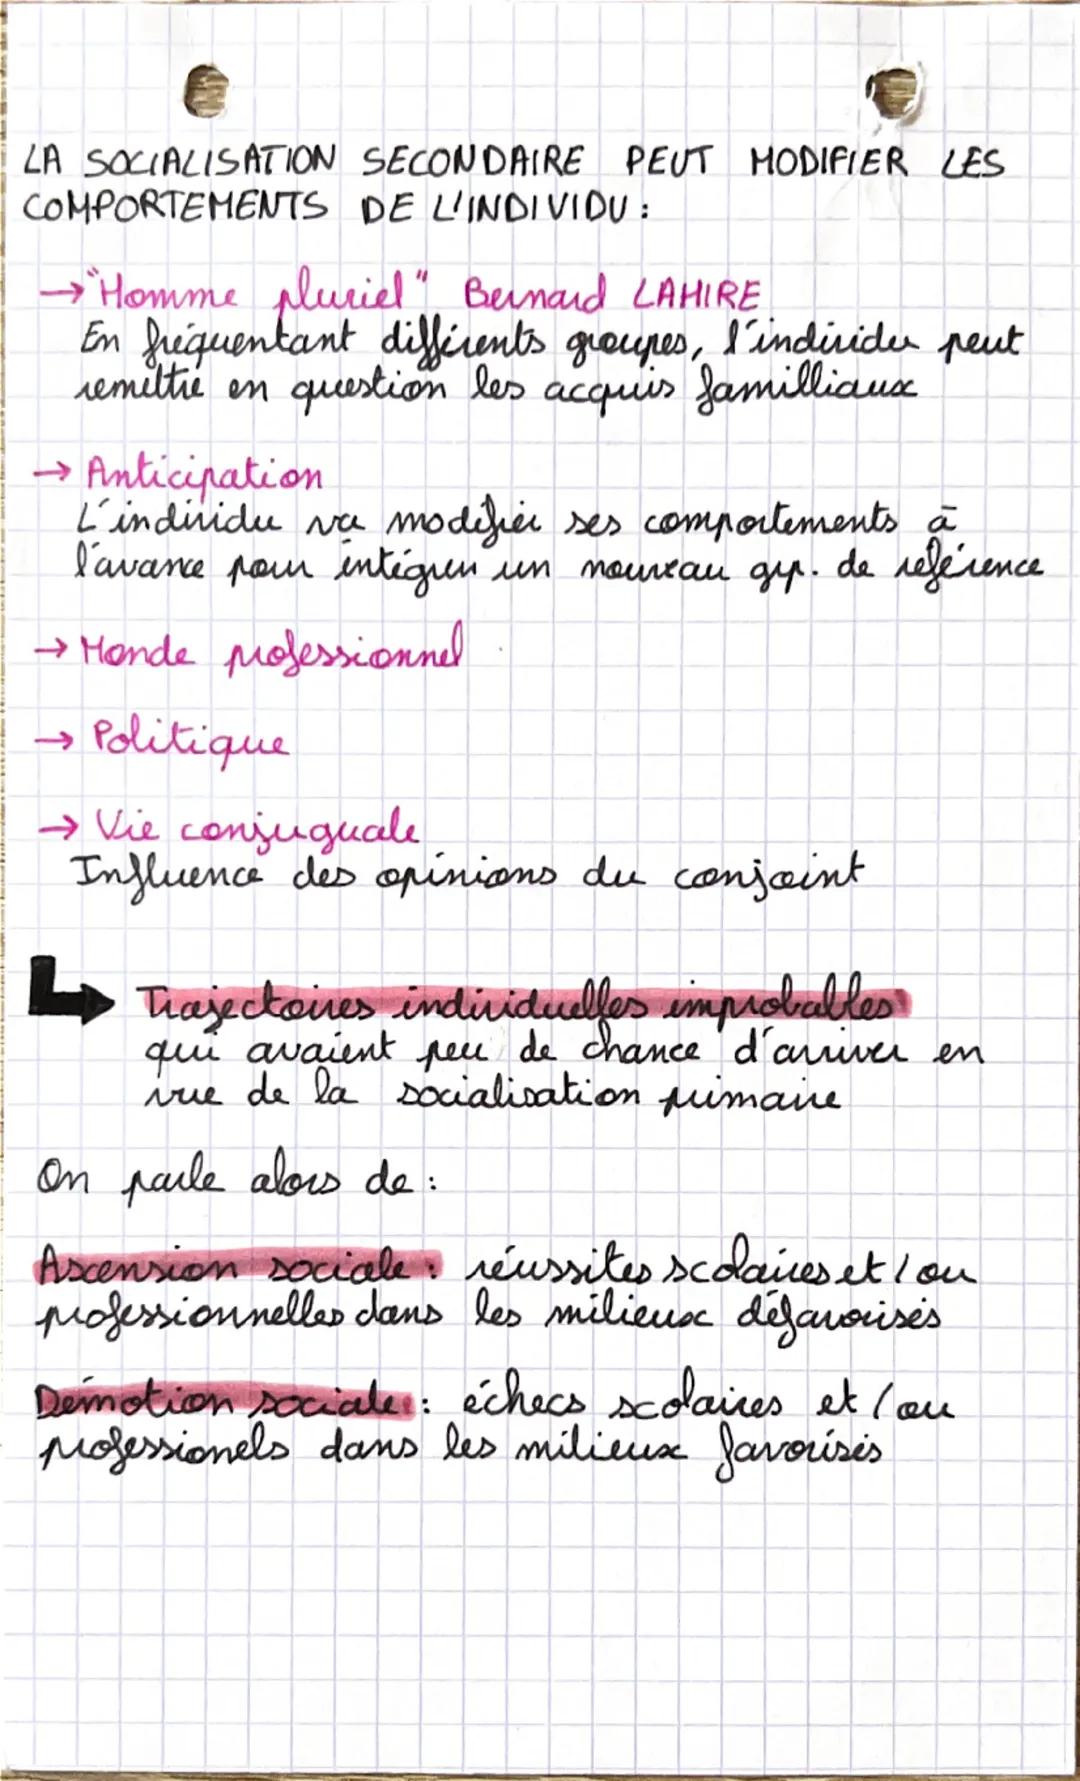 LA SOCIALISATION SECONDAIRE PEUT MODIFIER LES
COMPORTEMENTS DE L'INDIVIDU :
→ "Homme pluriel" Bernard LAHIRE
En fréquentant différents groupes, l'individu peut
remettre en question les acquis familliaux
→ Anticipation
L'individu va modifier ses comportements à
l'avance pour intégrer un nouveau grp. de référence
→ Monde professionnel
→ Politique
→ Vie conjuguale
Influence des opinions du conjoint
Trajectoires individuelles improbables
qui avaient peu de chance d'arriver en
vue de la socialisation primaire
On parle alors de :
Ascension sociale : réussites scolaires et/ou
professionnelles dans les milieux défavorisés
Démotion sociale : échecs scolaires et/ou
professionels dans les milieux favorisés